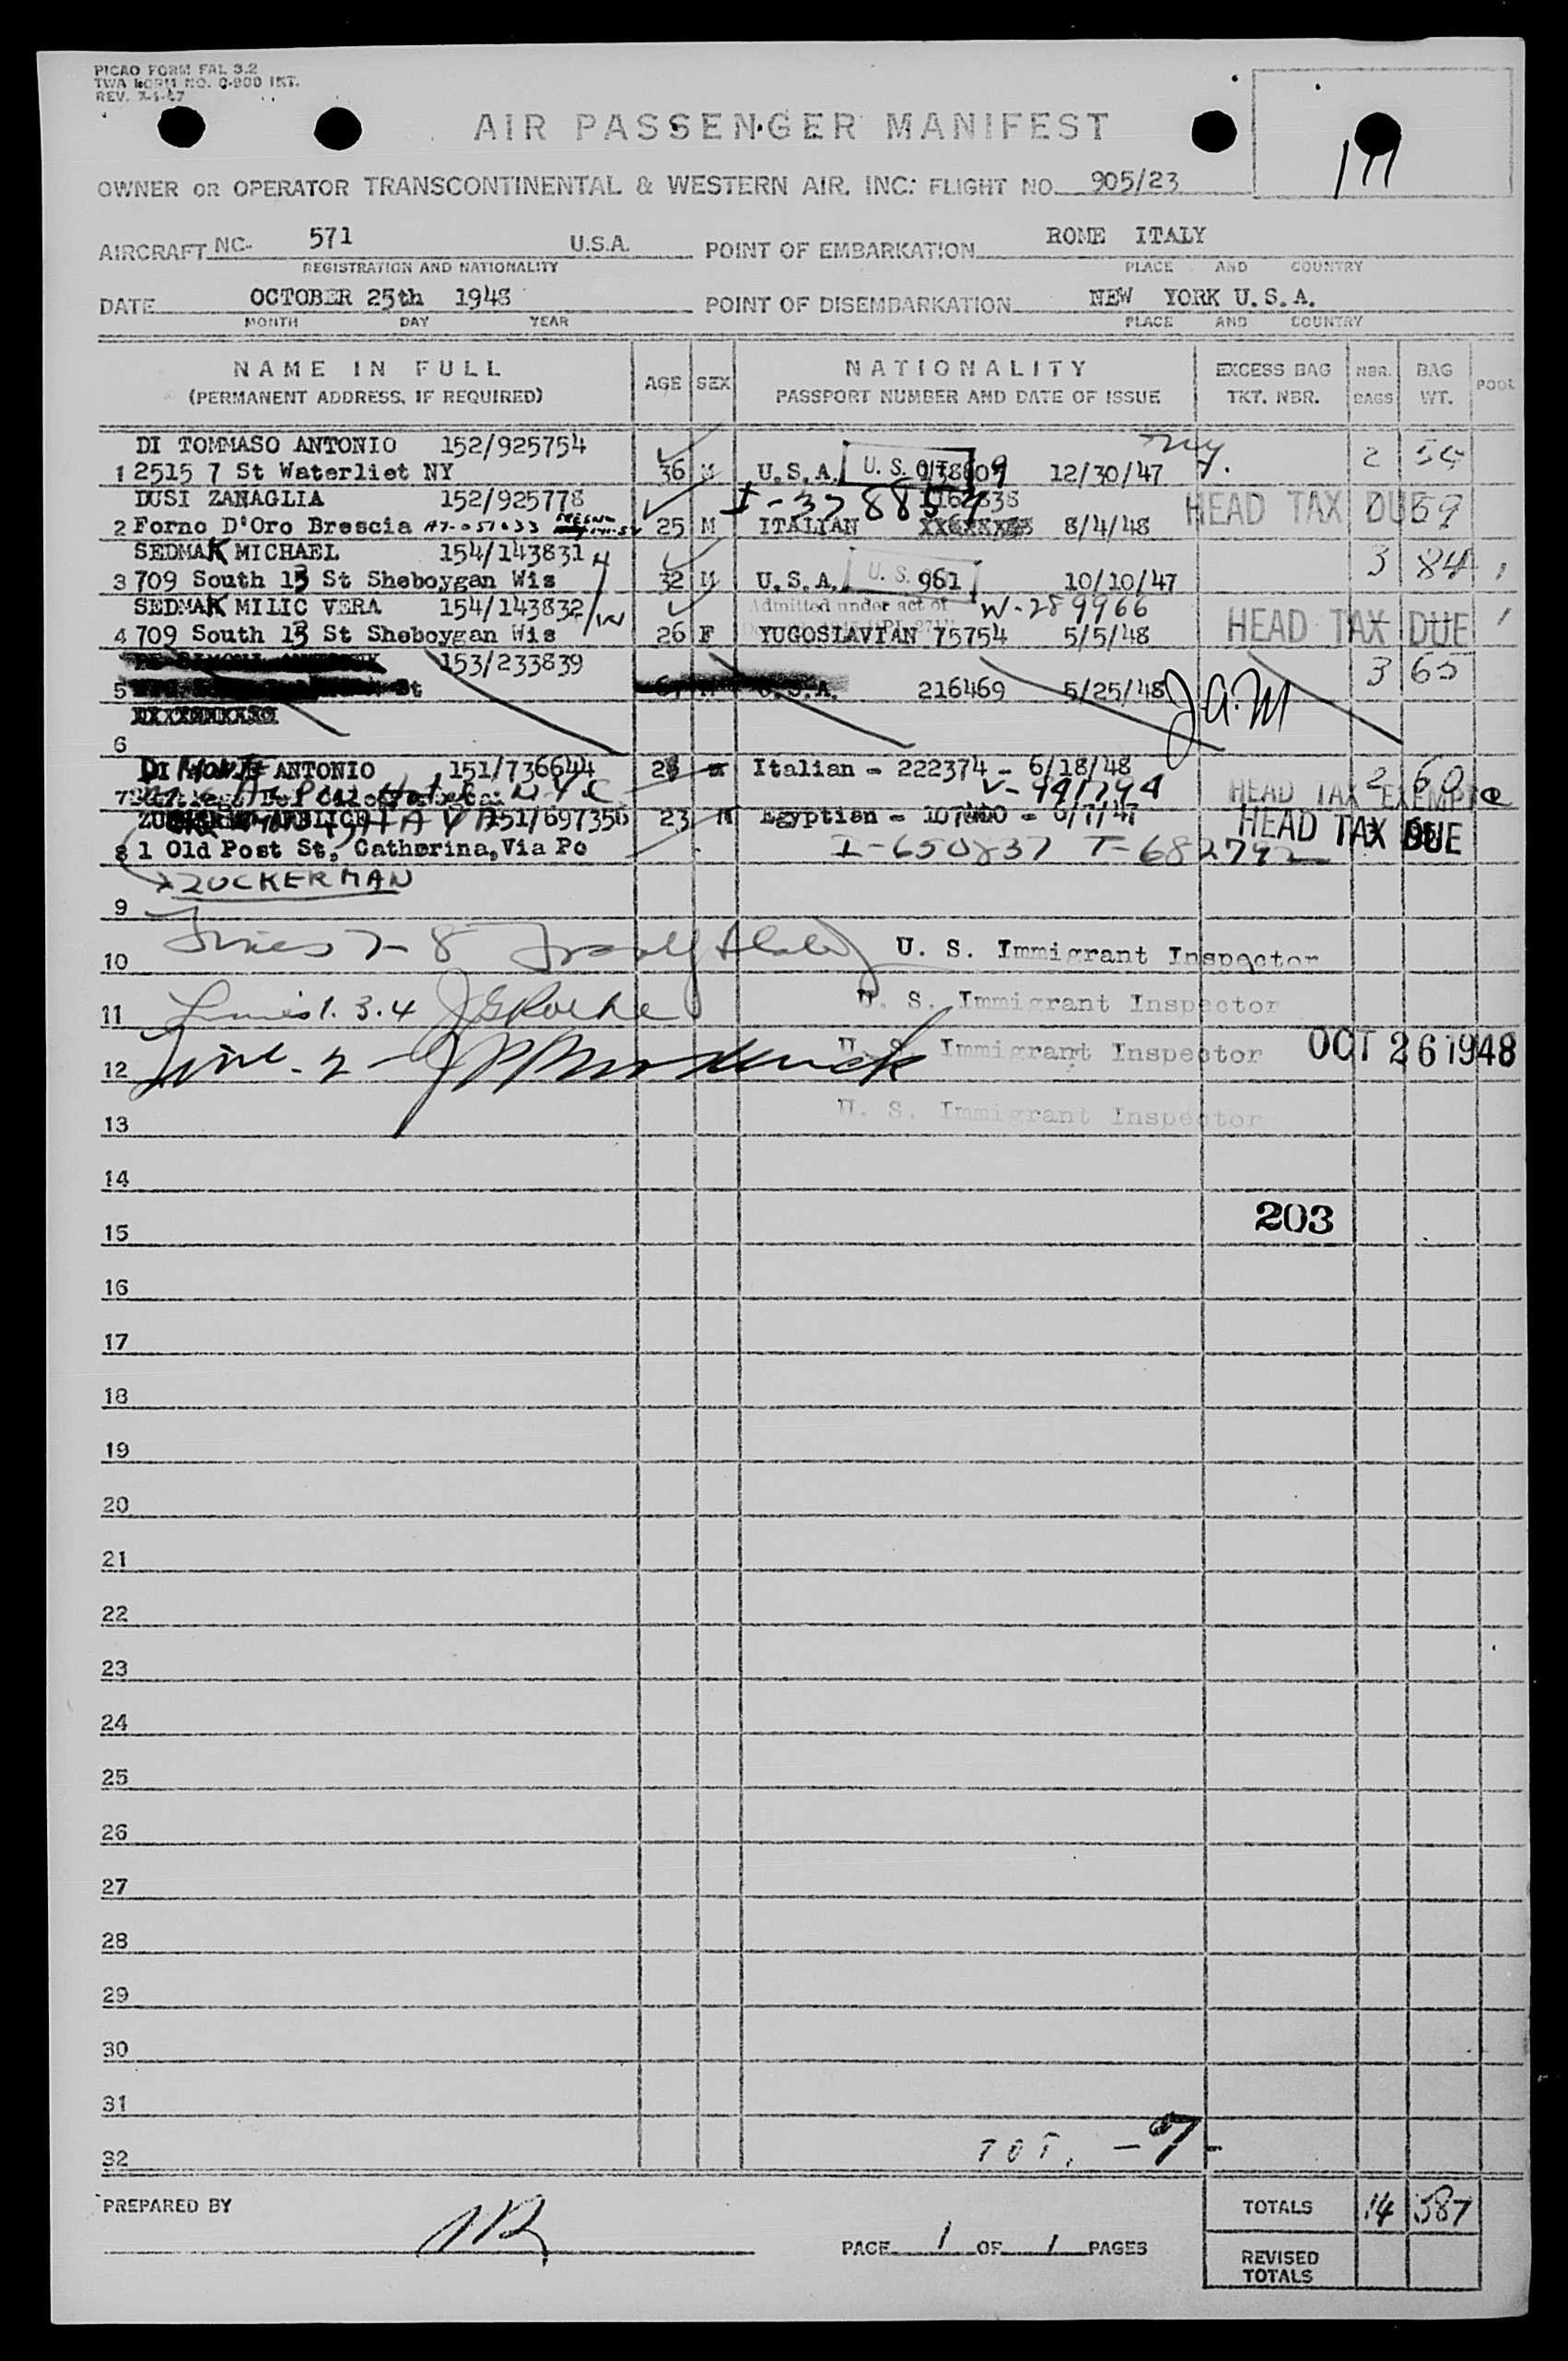 PICAO FORM FAL 3.2
TWA FORM NO. C-900 INT.
REV. 7-1-47
AIR PASSENGER MANIFEST
OWNER OR OPERATOR TRANSCONTINENTAL & WESTERN AIR, INC. FLIGHT NO. 905/23
AIRCRAFT NC- 571 U.S.A. POINT OF EMBARKATION ROME ITALY
REGISTRATION AND NATIONALITY PLACE AND COUNTRY
DATE OCTOBER 25th 1948 POINT OF DISEMBARKATION NEW YORK U.S.A.
MONTH DAY YEAR PLACE AND COUNTRY
NAME IN FULL AGE SEX NATIONALITY EXCESS BAG NBR. BAG POOL
(PERMANENT ADDRESS, IF REQUIRED) PASSPORT NUMBER AND DATE OF ISSUE TKT. NBR. BAGS WT.
DI TOMMASO ANTONIO 152/925754 ny. 2 54
1 2515 7 St Waterliet NY 36 M U.S.A. 12/30/47
DUSI ZANAGLIA 152/925778 HEAD TAX DUE 59
2 Forno D'Oro Brescia 25 M ITALIAN 8/4/48
SEDMAK MICHAEL 154/143831 3 84
3 709 South 13 St Sheboygan Wis 32 M U.S.A. 961 10/10/47
SEDMAK MILIC VERA 154/143832 Admitted under act of W-289966 HEAD TAX DUE
4 709 South 13 St Sheboygan Wis 26 F YUGOSLAVIAN 75754 5/5/48
153/233839 3 65
5 St U.S.A. 216469 5/25/48 J.A.M
6
DI MONTE ANTONIO 151/736644 28 M Italian - 222374 - 6/18/48 2 60
7 N.Y.C V-991794 HEAD TAX EXEMPT
151/697356 23 M Egyptian HEAD TAX DUE
8 1 Old Post St, Catherina, Via Po I-650837 T-682792
ZUCKERMAN
9
10 Lines 7-8 U. S. Immigrant Inspector
11 Lines 1.3.4 J G Roche U. S. Immigrant Inspector
12 Line - 2 - U. S. Immigrant Inspector OCT 26 1948
13 U. S. Immigrant Inspector
14
15 203
16
17
18
19
20
21
22
23
24
25
26
27
28
29
30
31
32 TOT. -7-
PREPARED BY TOTALS 14 387
PAGE 1 OF 1 PAGES
REVISED
TOTALS